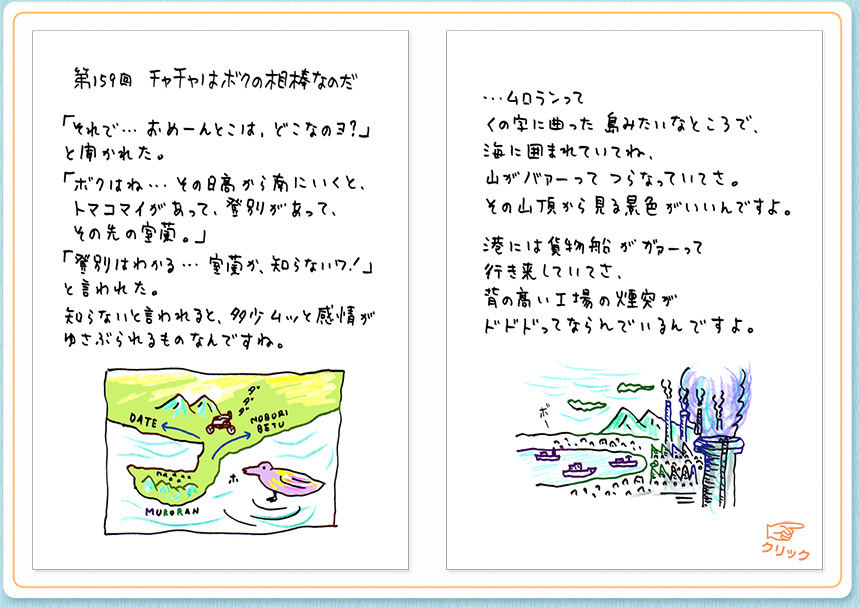 第159回 チャチャはボクの相棒なのだ
「それで… おめーんとこは、どこなのヨ?」
と聞かれた。
「ボクはね… その日高から南にいくと、
トマコマイがあって、登別があって、
その先の室蘭。」
「登別はわかる… 室蘭か、知らないワ!」
と言われた。
知らないと言われると、多少ムッと感情が
ゆさぶられるものなんですね。
ダダダ
DATE
NOBORI
BETU
ホ
MURORAN
…ムロランって
くの字に曲った 島みたいなところで、
海に囲まれていてね、
山がバァーって つらなっていてさ。
その山頂から見る景色がいいんですよ。
港には貨物船がガァーって
行き来していてさ、
背の高い工場の煙突が
ドドドってならんでいるんですよ。
ボー
クリック